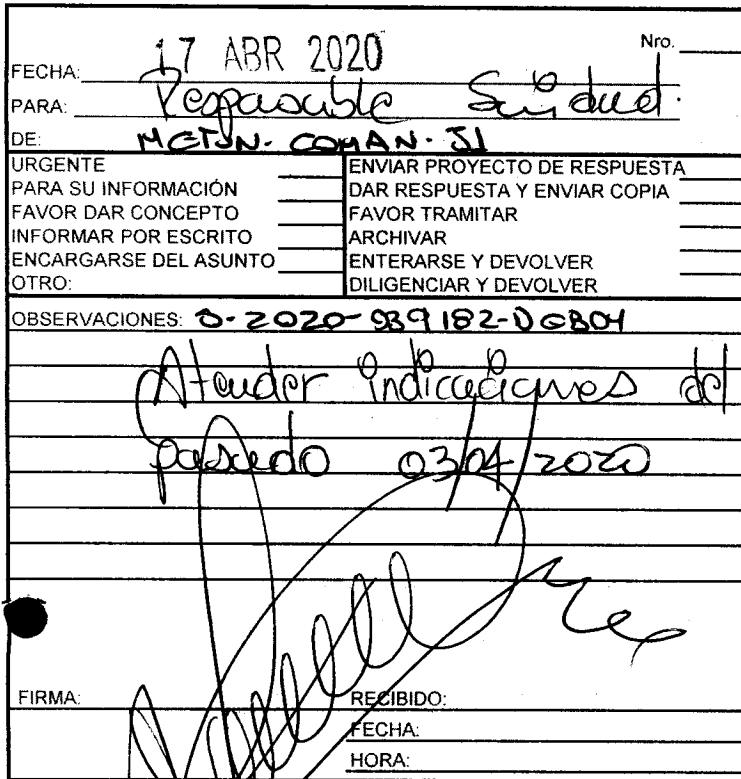 Nro.
FECHA: 17 ABR 2020
PARA: Responsable Sanidad.
DE: METUN. COMAN. J1
URGENTE
PARA SU INFORMACIÓN
FAVOR DAR CONCEPTO
INFORMAR POR ESCRITO
ENCARGARSE DEL ASUNTO
OTRO:
ENVIAR PROYECTO DE RESPUESTA
DAR RESPUESTA Y ENVIAR COPIA
FAVOR TRAMITAR
ARCHIVAR
ENTERARSE Y DEVOLVER
DILIGENCIAR Y DEVOLVER
OBSERVACIONES:
Atender indicaciones del
pasado 03/04/2020
FIRMA:
RECIBIDO:
FECHA:
HORA: